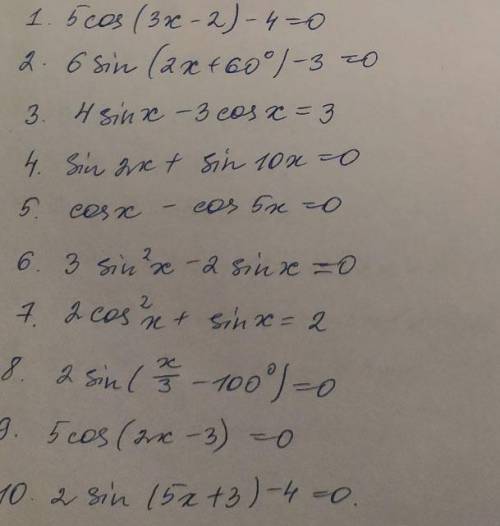 1. 5cos(3x-2)-4=0
2. 6 sin (2x+60°)-3=0
3. 4 sinx -3 cosx = 3
4. sin 2x + sin 10x=0
5. cosx - cos 5x=0
6. 3 sin²x -2 sinx =0
7. 2cos²x + sinx = 2
8. 2 sin(x/3 -100°)=0
9. 5cos(2x-3) =0
10. 2 sin (5x+3)-4=0.